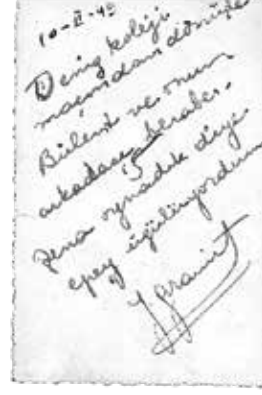 10-II-49
Deniz koleji
maçından dönüşte
Bülent ve onun
arkadaşı beraber.
Fena oynadık diye
epey üzülüyordum